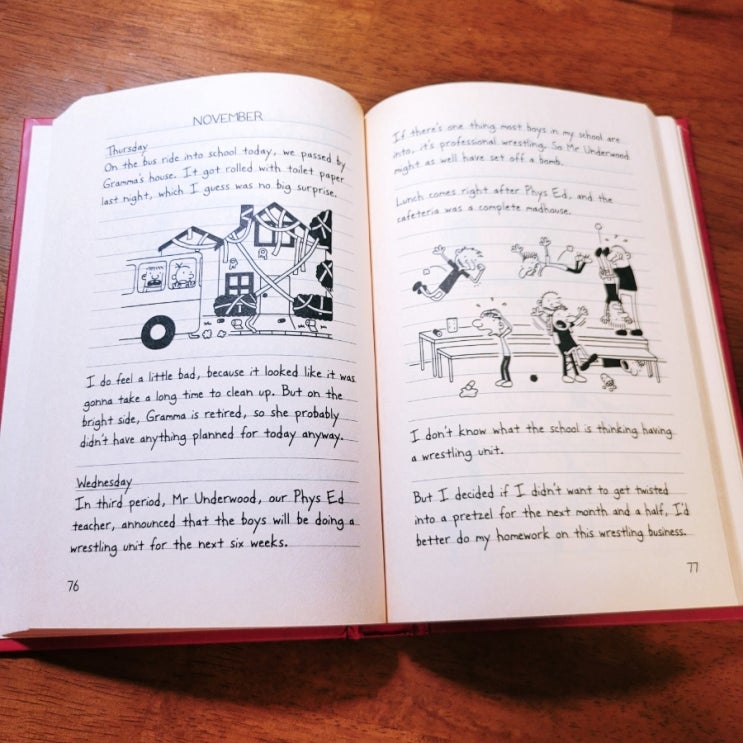 NOVEMBER
Thursday
On the bus ride into school today, we passed by
Gramma's house. It got rolled with toilet paper
last night, which I guess was no big surprise.
I do feel a little bad, because it looked like it was
gonna take a long time to clean up. But on the
bright side, Gramma is retired, so she probably
didn't have anything planned for today anyway.
Wednesday
In third period, Mr Underwood, our Phys Ed
teacher, announced that the boys will be doing a
wrestling unit for the next six weeks.
76
If there's one thing most boys in my school are
into, it's professional wrestling. So Mr Underwood
might as well have set off a bomb.
Lunch comes right after Phys Ed, and the
cafeteria was a complete madhouse.
I don't know what the school is thinking having
a wrestling unit.
But I decided if I didn't want to get twisted
into a pretzel for the next month and a half, I'd
better do my homework on this wrestling business.
77